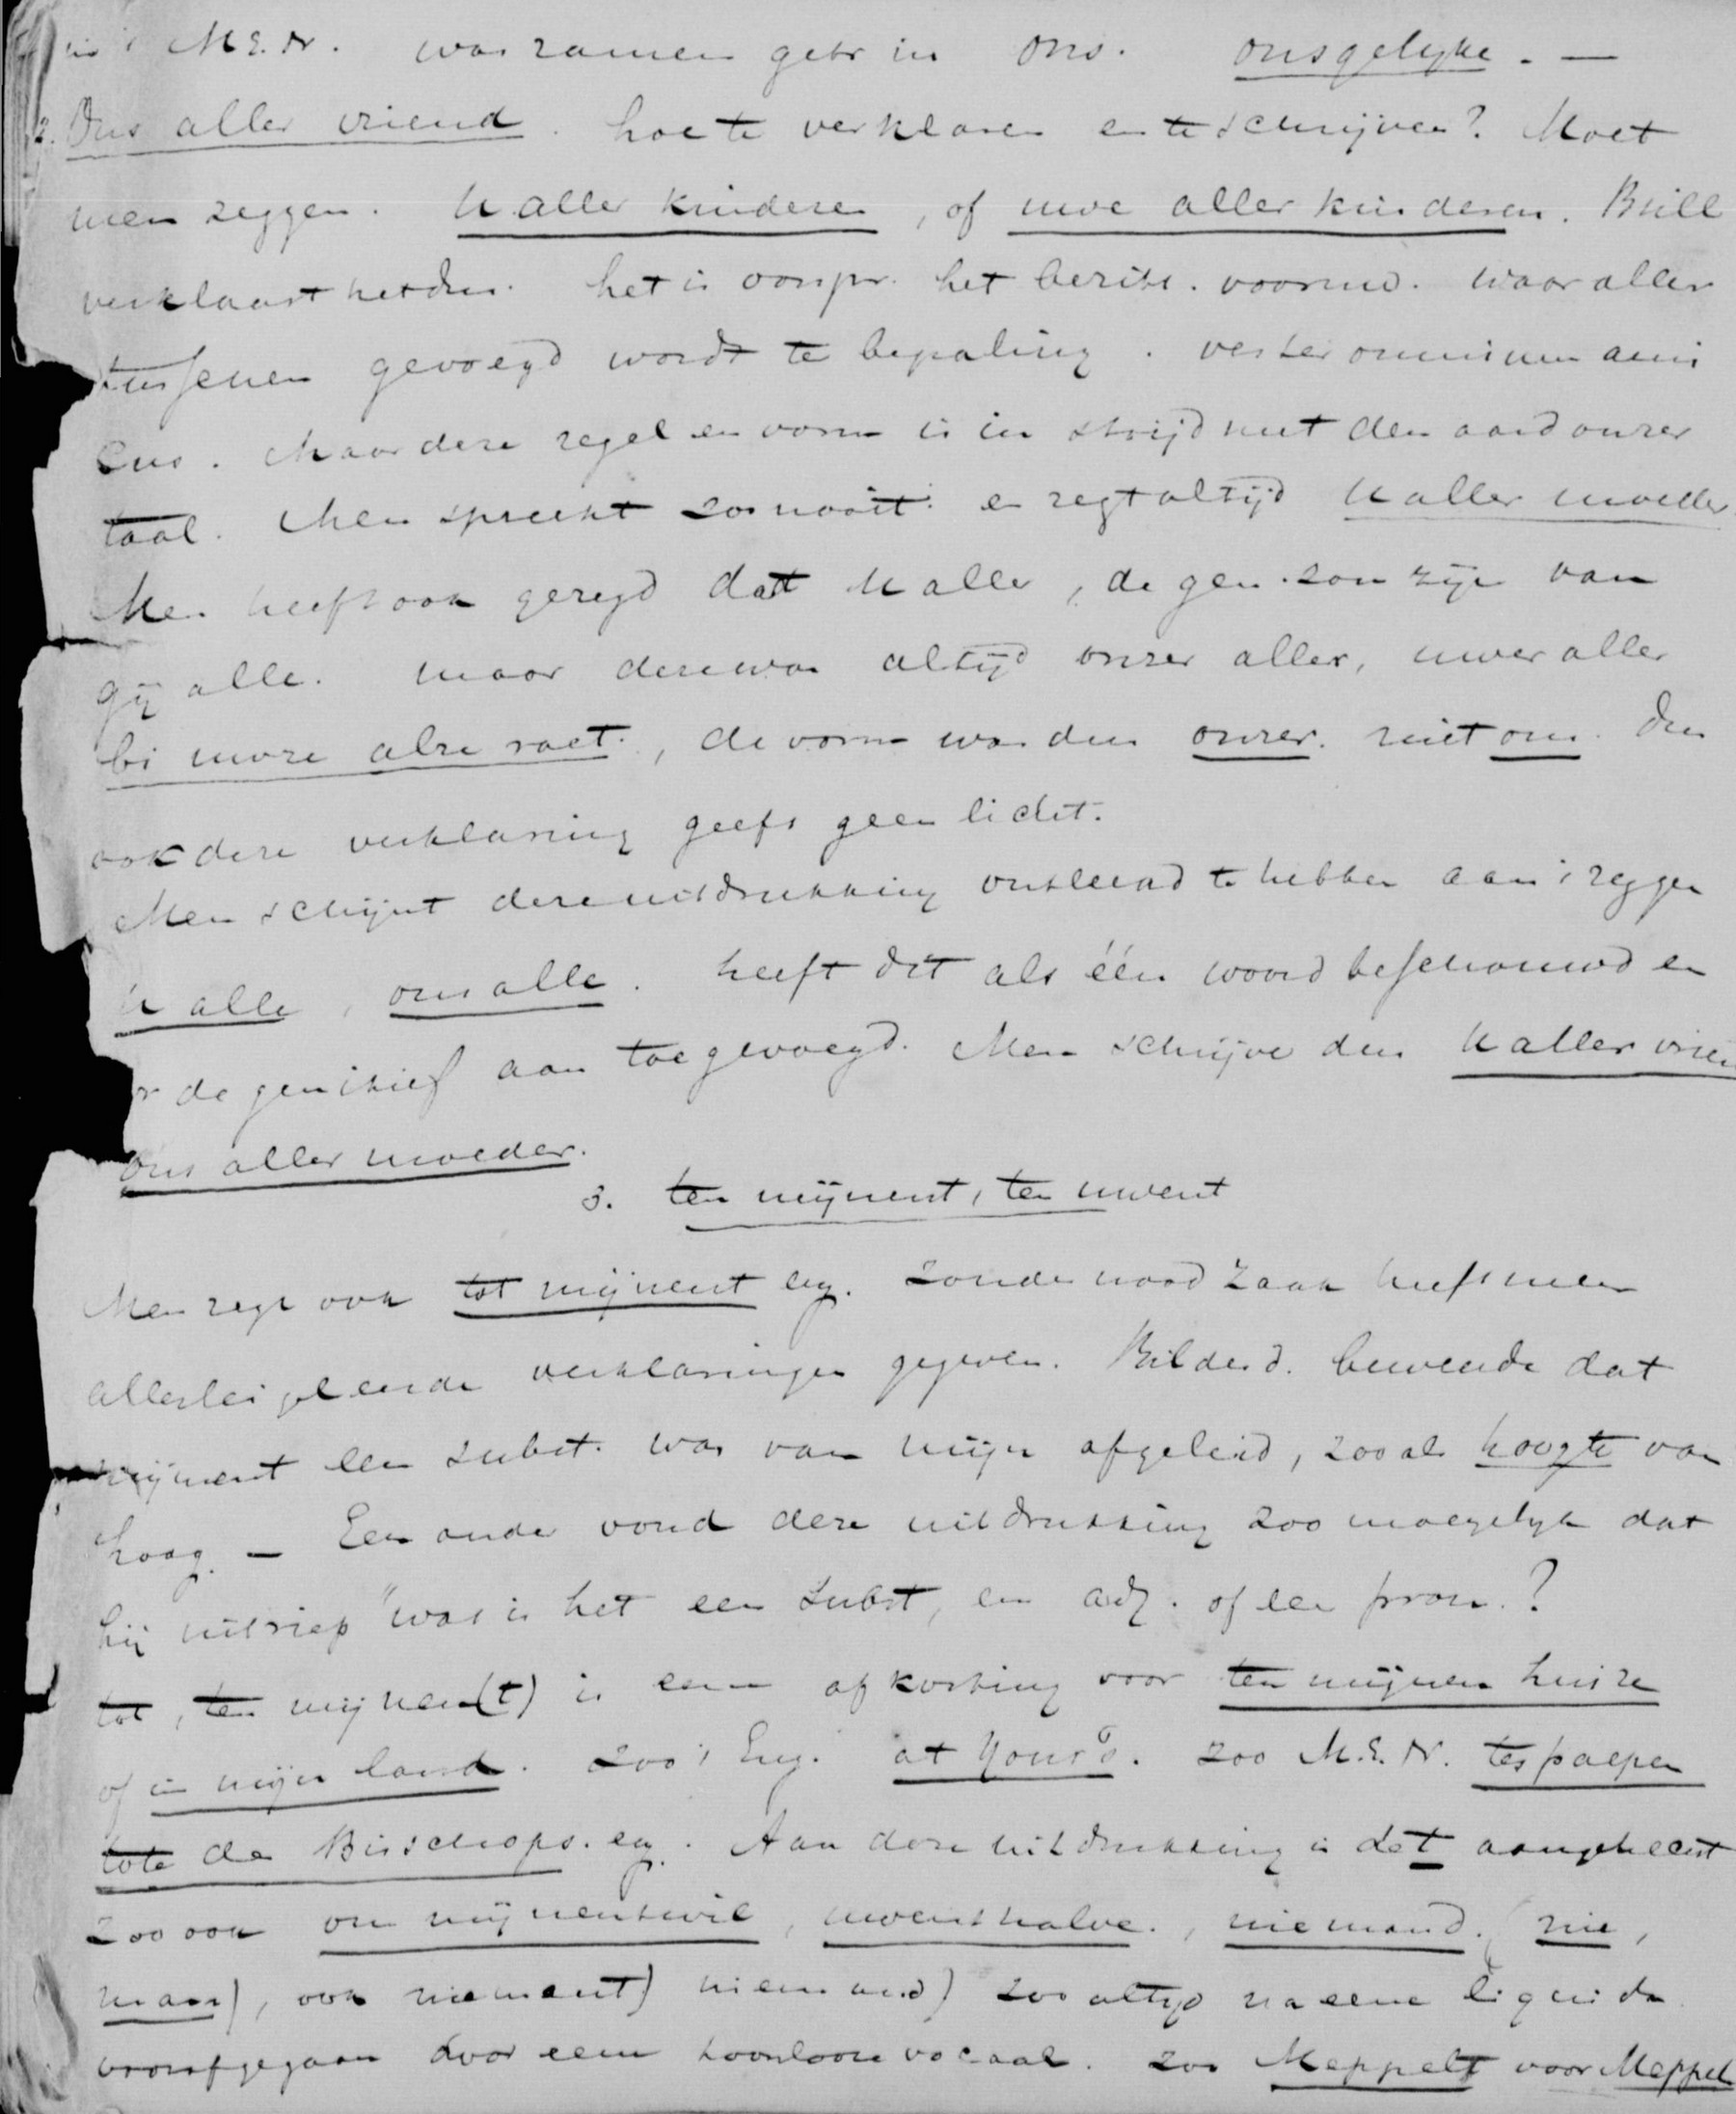 in 't M.E.N. was zamen getr in ons. onsgelyke. —
2. Ons aller vriend. hoe te verklaren en te schrijven? Moet
men zeggen. U aller kinderen, of uwe aller kinderen. Brill
verklaart het dus. het is oorspr. het bezitt. voornw. waar aller
tusschen gevoegd wordt te bepaling. vester omnium ami
cus. Maar deze regel en vorm is in strijd met den aard onzer
taal. Men spreekt zoo nooit en zegt altijd U aller moeder.
Men heeft ook gezegd dat U aller, de gen. zou zijn van
gij alle. maar deze was altijd onzer aller, uwer aller
bi uwze alre raet., de vorm was dus onzer. niet ons. Dus
ook deze verklaring geeft geen licht.
Men schijnt deze uitdrukking ontleend te hebben aan 't zeggen
U alle, ons alle. heeft dit als één woord beschouwd en
r de genitief aan toegevoegd. Men schrijve dus U aller vrien
Ons aller moeder.
3. ten mijnent, ten uwent
Men zegt ook tot mijnent enz. Zonder noodzaak heeft men
allerlei geleerde verklaringen gegeven. Bilderd. beweerde dat
mijnent een subst. was van mijn afgeleid, zooals hoogte van
hoog. — Een ander vond deze uitdrukking zoo moeyelyk dat
hij uitriep "wat is het een subst, een adj. of een pron.?
tot, ten mijnen(t) is eene afkorting voor ten mijnen huize
of in mijn land. Zoo 't Eng. at Your's. Zoo M.E.N. tes paepen
tote des Bisschops. enz. Aan deze uitdrukking is de t aangehecht
Zoo ook om mijnentwil, uwenthalve., niemand. (nie,
man), ook niement) niemand) Zoo altyd na eene liquida
voorafgegaan door een toonlooze vocaal. Zoo Meppelt voor Meppel